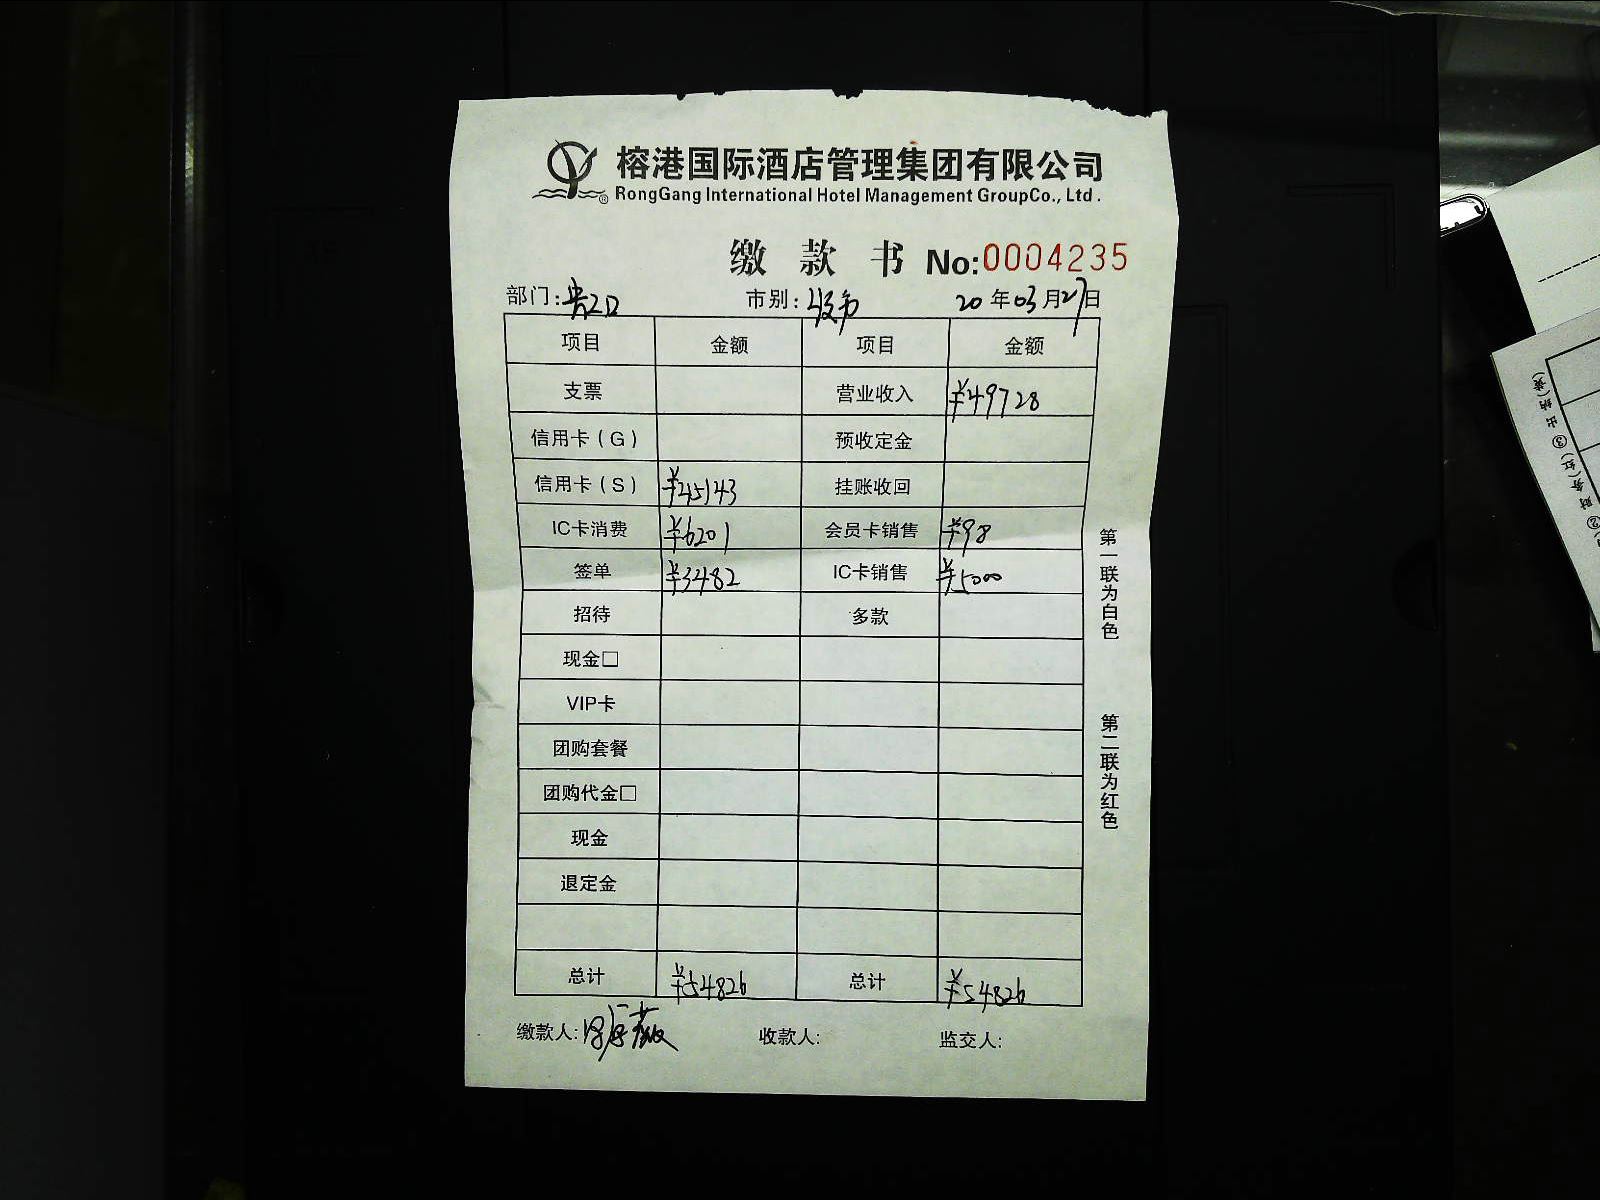 榕港国际酒店管理集团有限公司
®RongGang International Hotel Management GroupCo., Ltd .
缴 款 书 No:0004235
部门: 市别: 20 年 03 月 27 日
项目 金额 项目 金额
支票 营业收入 ¥49728
信用卡(G) 预收定金
信用卡(S) ¥45143 挂账收回
IC卡消费 ¥6201 会员卡销售 ¥98
签单 ¥3482 IC卡销售 ¥5000
招待 多款
现金□
VIP卡
团购套餐
团购代金□
现金
退定金
总计 ¥54826 总计 ¥54826
缴款人: 收款人: 监交人:
第一联为白色
第二联为红色
②财务(红)③出纳(黄)